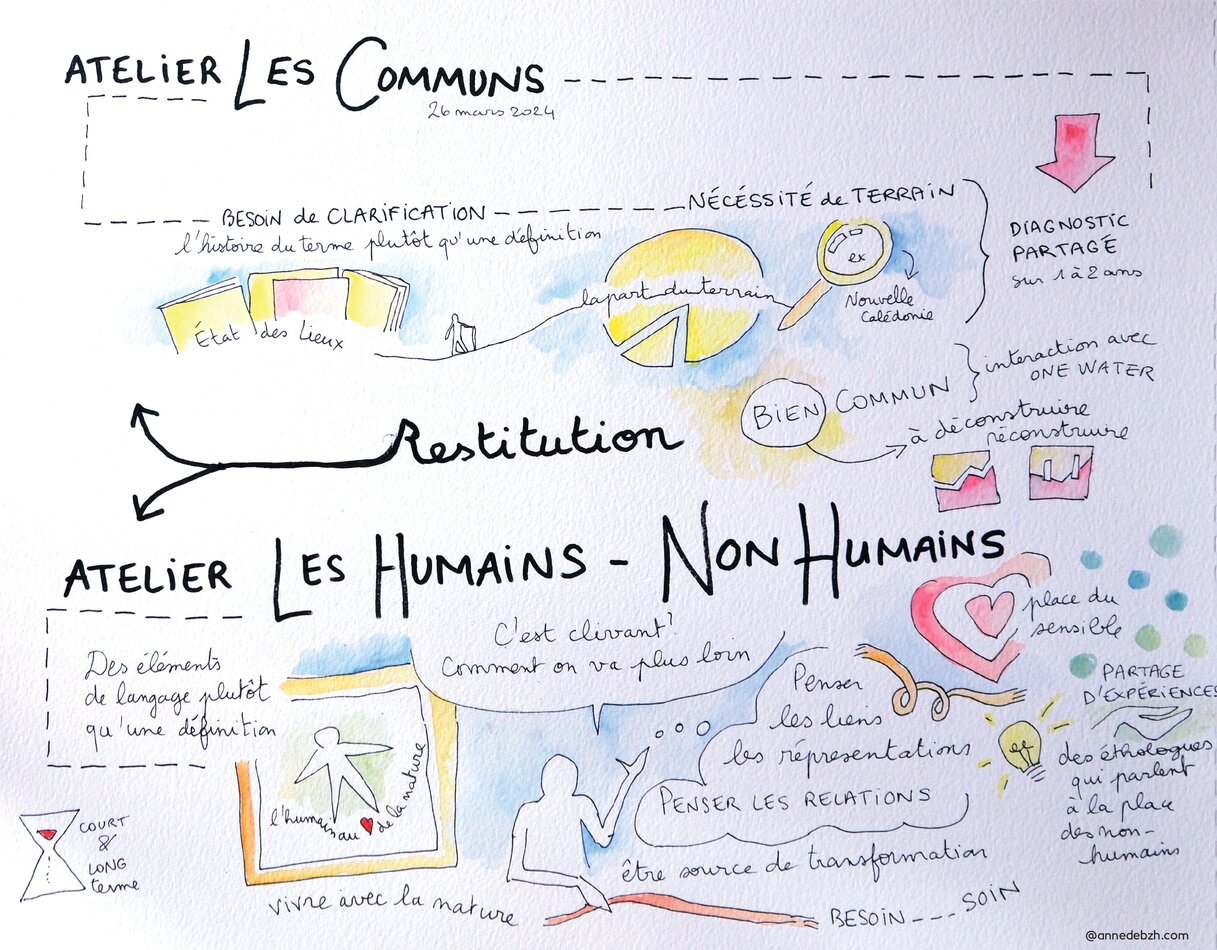 ATELIER LES COMMUNS
26 mars 2024
BESOIN de CLARIFICATION
l'histoire du terme plutôt qu'une définition
État des Lieux
NÉCÉSSITÉ de TERRAIN
la part du terrain
ex
Nouvelle
Calédonie
DIAGNOSTIC
PARTAGÉ
sur 1 à 2 ans
BIEN COMMUN
interaction avec
ONE WATER
à déconstruire
réconstruire
Restitution
ATELIER LES HUMAINS - NON HUMAINS
Des éléments
de langage plutôt
qu'une définition
COURT
&
LONG
terme
l'humain au de la nature
vivre avec la nature
C'est clivant?
Comment on va plus loin
Penser
les liens
les réprésentations
PENSER LES RELATIONS
être source de transformation
BESOIN --- SOIN
place du
sensible
PARTAGE
D'EXPÉRIENCES
ex
des éthologues
qui parlent
à la place
des non-
humains
@annedebzh.com